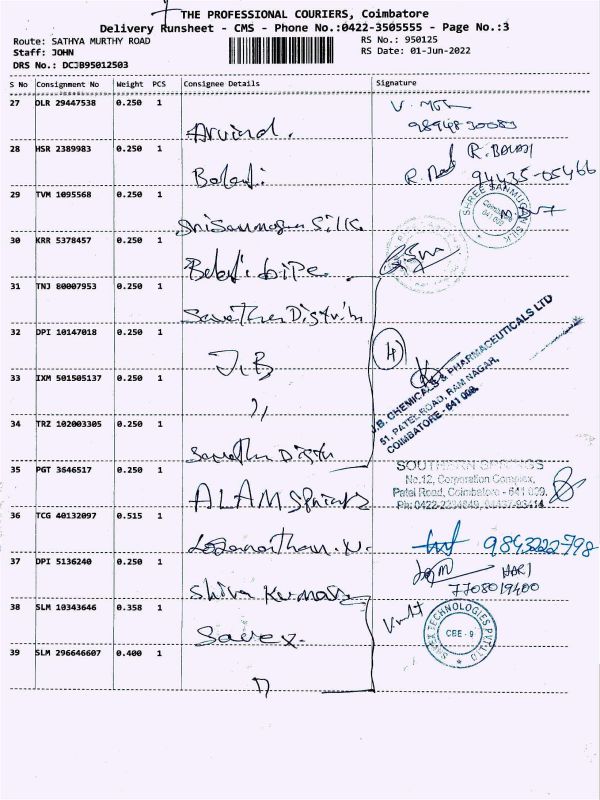 THE PROFESSIONAL COURIERS, Coimbatore
Delivery Runsheet - CMS - Phone No.:0422-3505555 - Page No.:3
Route: SATHYA MURTHY ROAD
RS No.: 950125
Staff: JOHN
RS Date: 01-Jun-2022
DRS No.: DCJB95012503
S No Consignment No Weight PCS Consignee Details Signature
27 DLR 29447538 0.250 1
Arvind.
28 HSR 2389983 0.250 1
R. BALAJI
Balaji
94435-05466
29 TVM 1095568 0.250 1
SHREE SANMUGAN SILK
Coimbatore
641 009
30 KRR 5378457 0.250 1
31 TNJ 80007953 0.250 1
32 DPI 10147018 0.250 1
J.B
4
J.B. CHEMICALS & PHARMACEUTICALS LTD
51, PATEL ROAD, RAM NAGAR,
COIMBATORE - 641 009.
33 IXM 501505137 0.250 1
"
34 TRZ 102003305 0.250 1
35 PGT 3646517 0.250 1
SOUTHERN SPRINGS
No.12, Corporation Complex,
Patel Road, Coimbatore - 641 009.
36 TCG 40132097 0.515 1
9843222798
37 DPI 5136240 0.250 1
HARI
7708019400
Shiva Kumar
38 SLM 10343646 0.358 1
Savex
SAVEX TECHNOLOGIES PVT LTD
CBE - 9
39 SLM 296646607 0.400 1
"